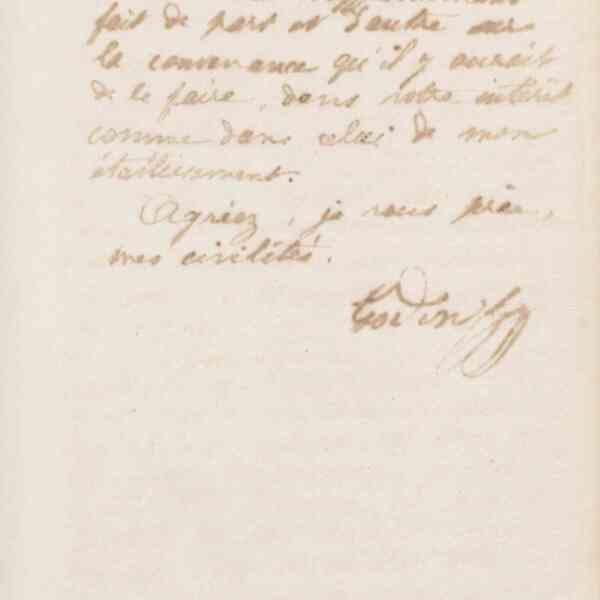 fait de part et d'autre sur
la convenance qu'il y aurait
de le faire, dans votre intérêt
comme dans celui de mon
établissement.
Agréez, je vous prie,
mes civilités.
Godin